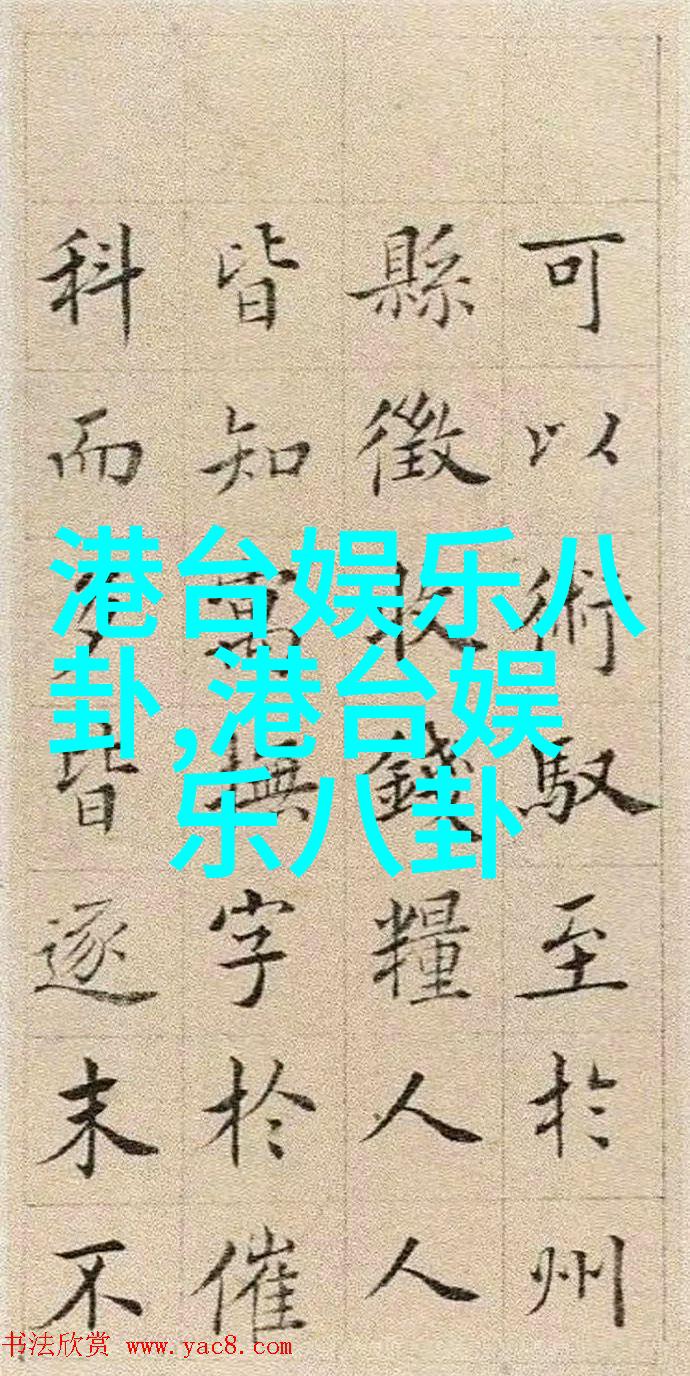 可以術馭至於州
縣徵收錢糧人人
皆知寓撫字於催
科而多皆逐末不
港台娱乐八
卦,港台娱
乐八卦
书法欣赏 www.yac8.com